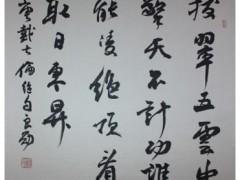 拔翠五雲中
擎天不計功誰
能凌絕頂看
取日東昇